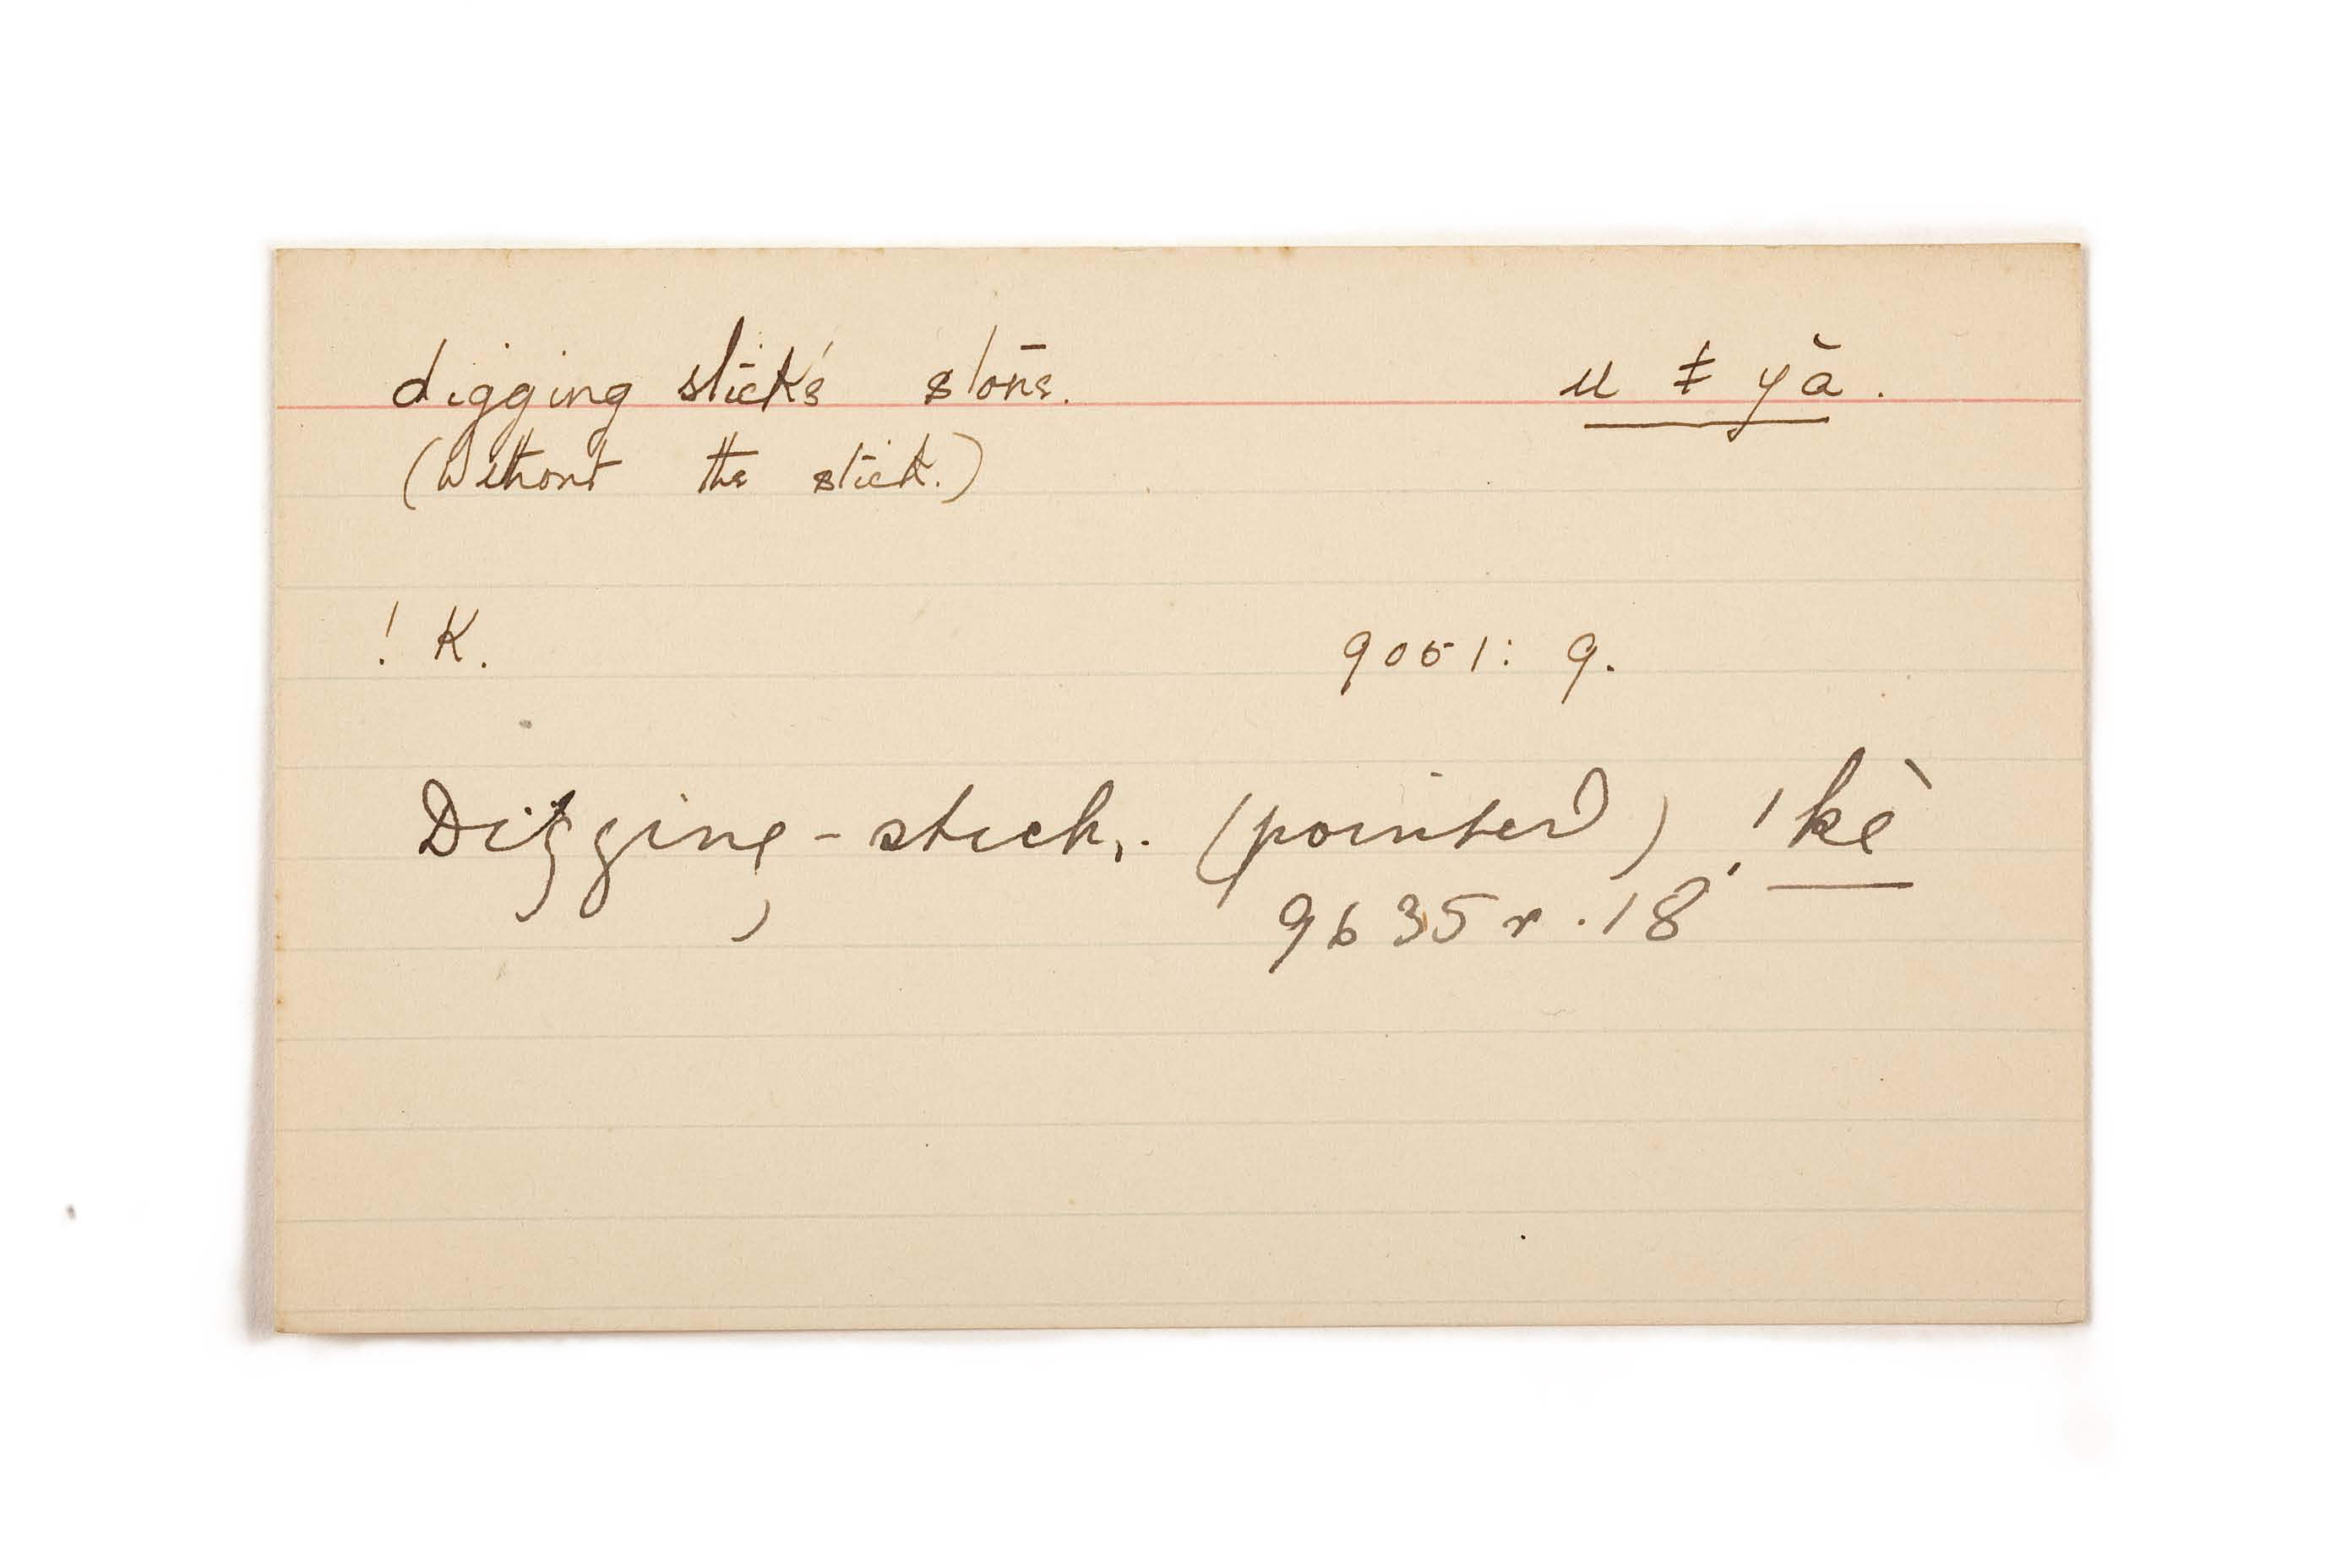 digging stick's stone. u ǂ yǎ.
(without the stick.)
! K. 9051: 9.
Digging-stick, (pointed) !kè
9635 r. 18